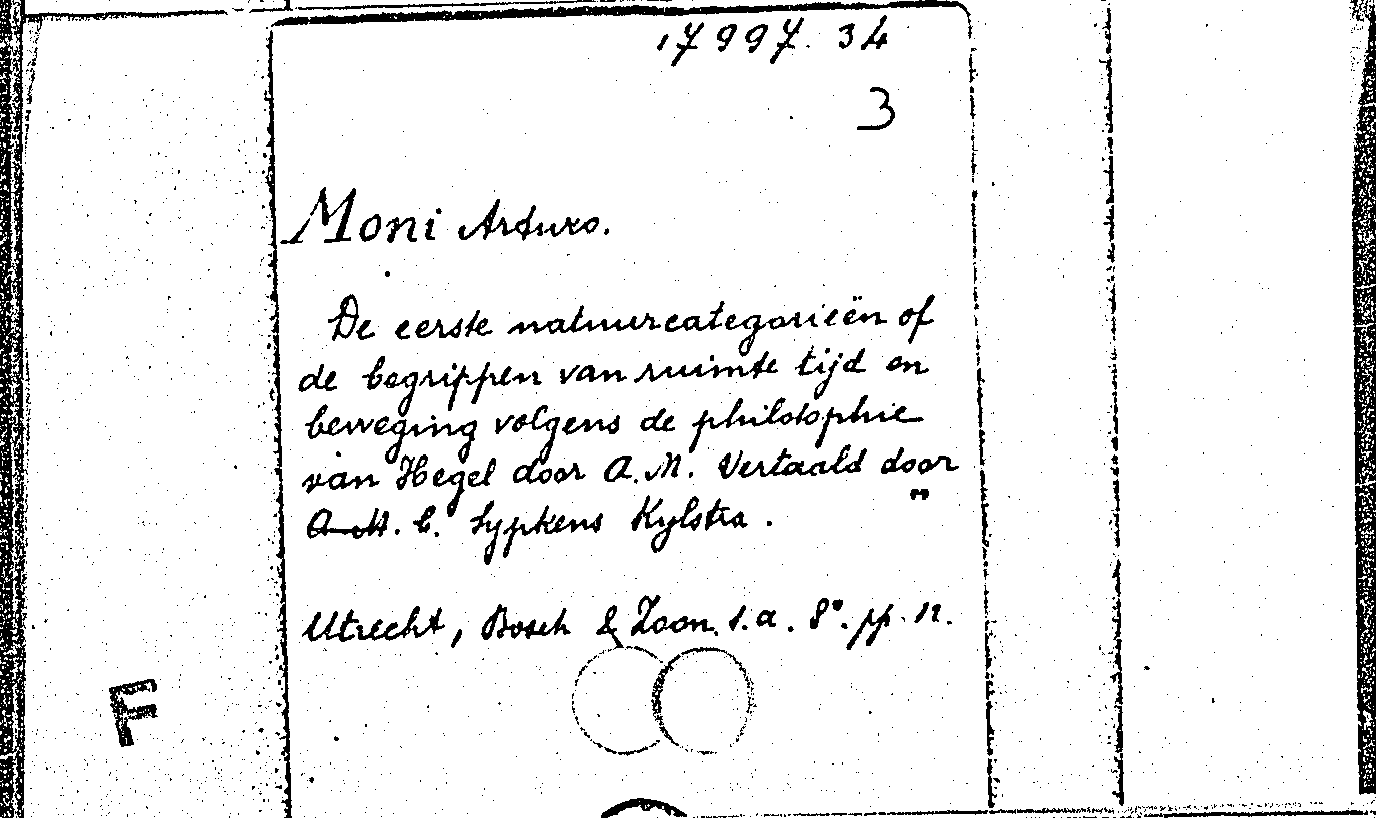 17997. 34
3
Moni Arturo.
De eerste natuurcategorieën of
de begrippen van ruimte tijd en
beweging volgens de philosophie
van Hegel door A. M. Vertaald door
A. M. C. Sypkens Kylstra.
Utrecht, Bosch & Zoon. s. a. 8°. pp. 12.
F